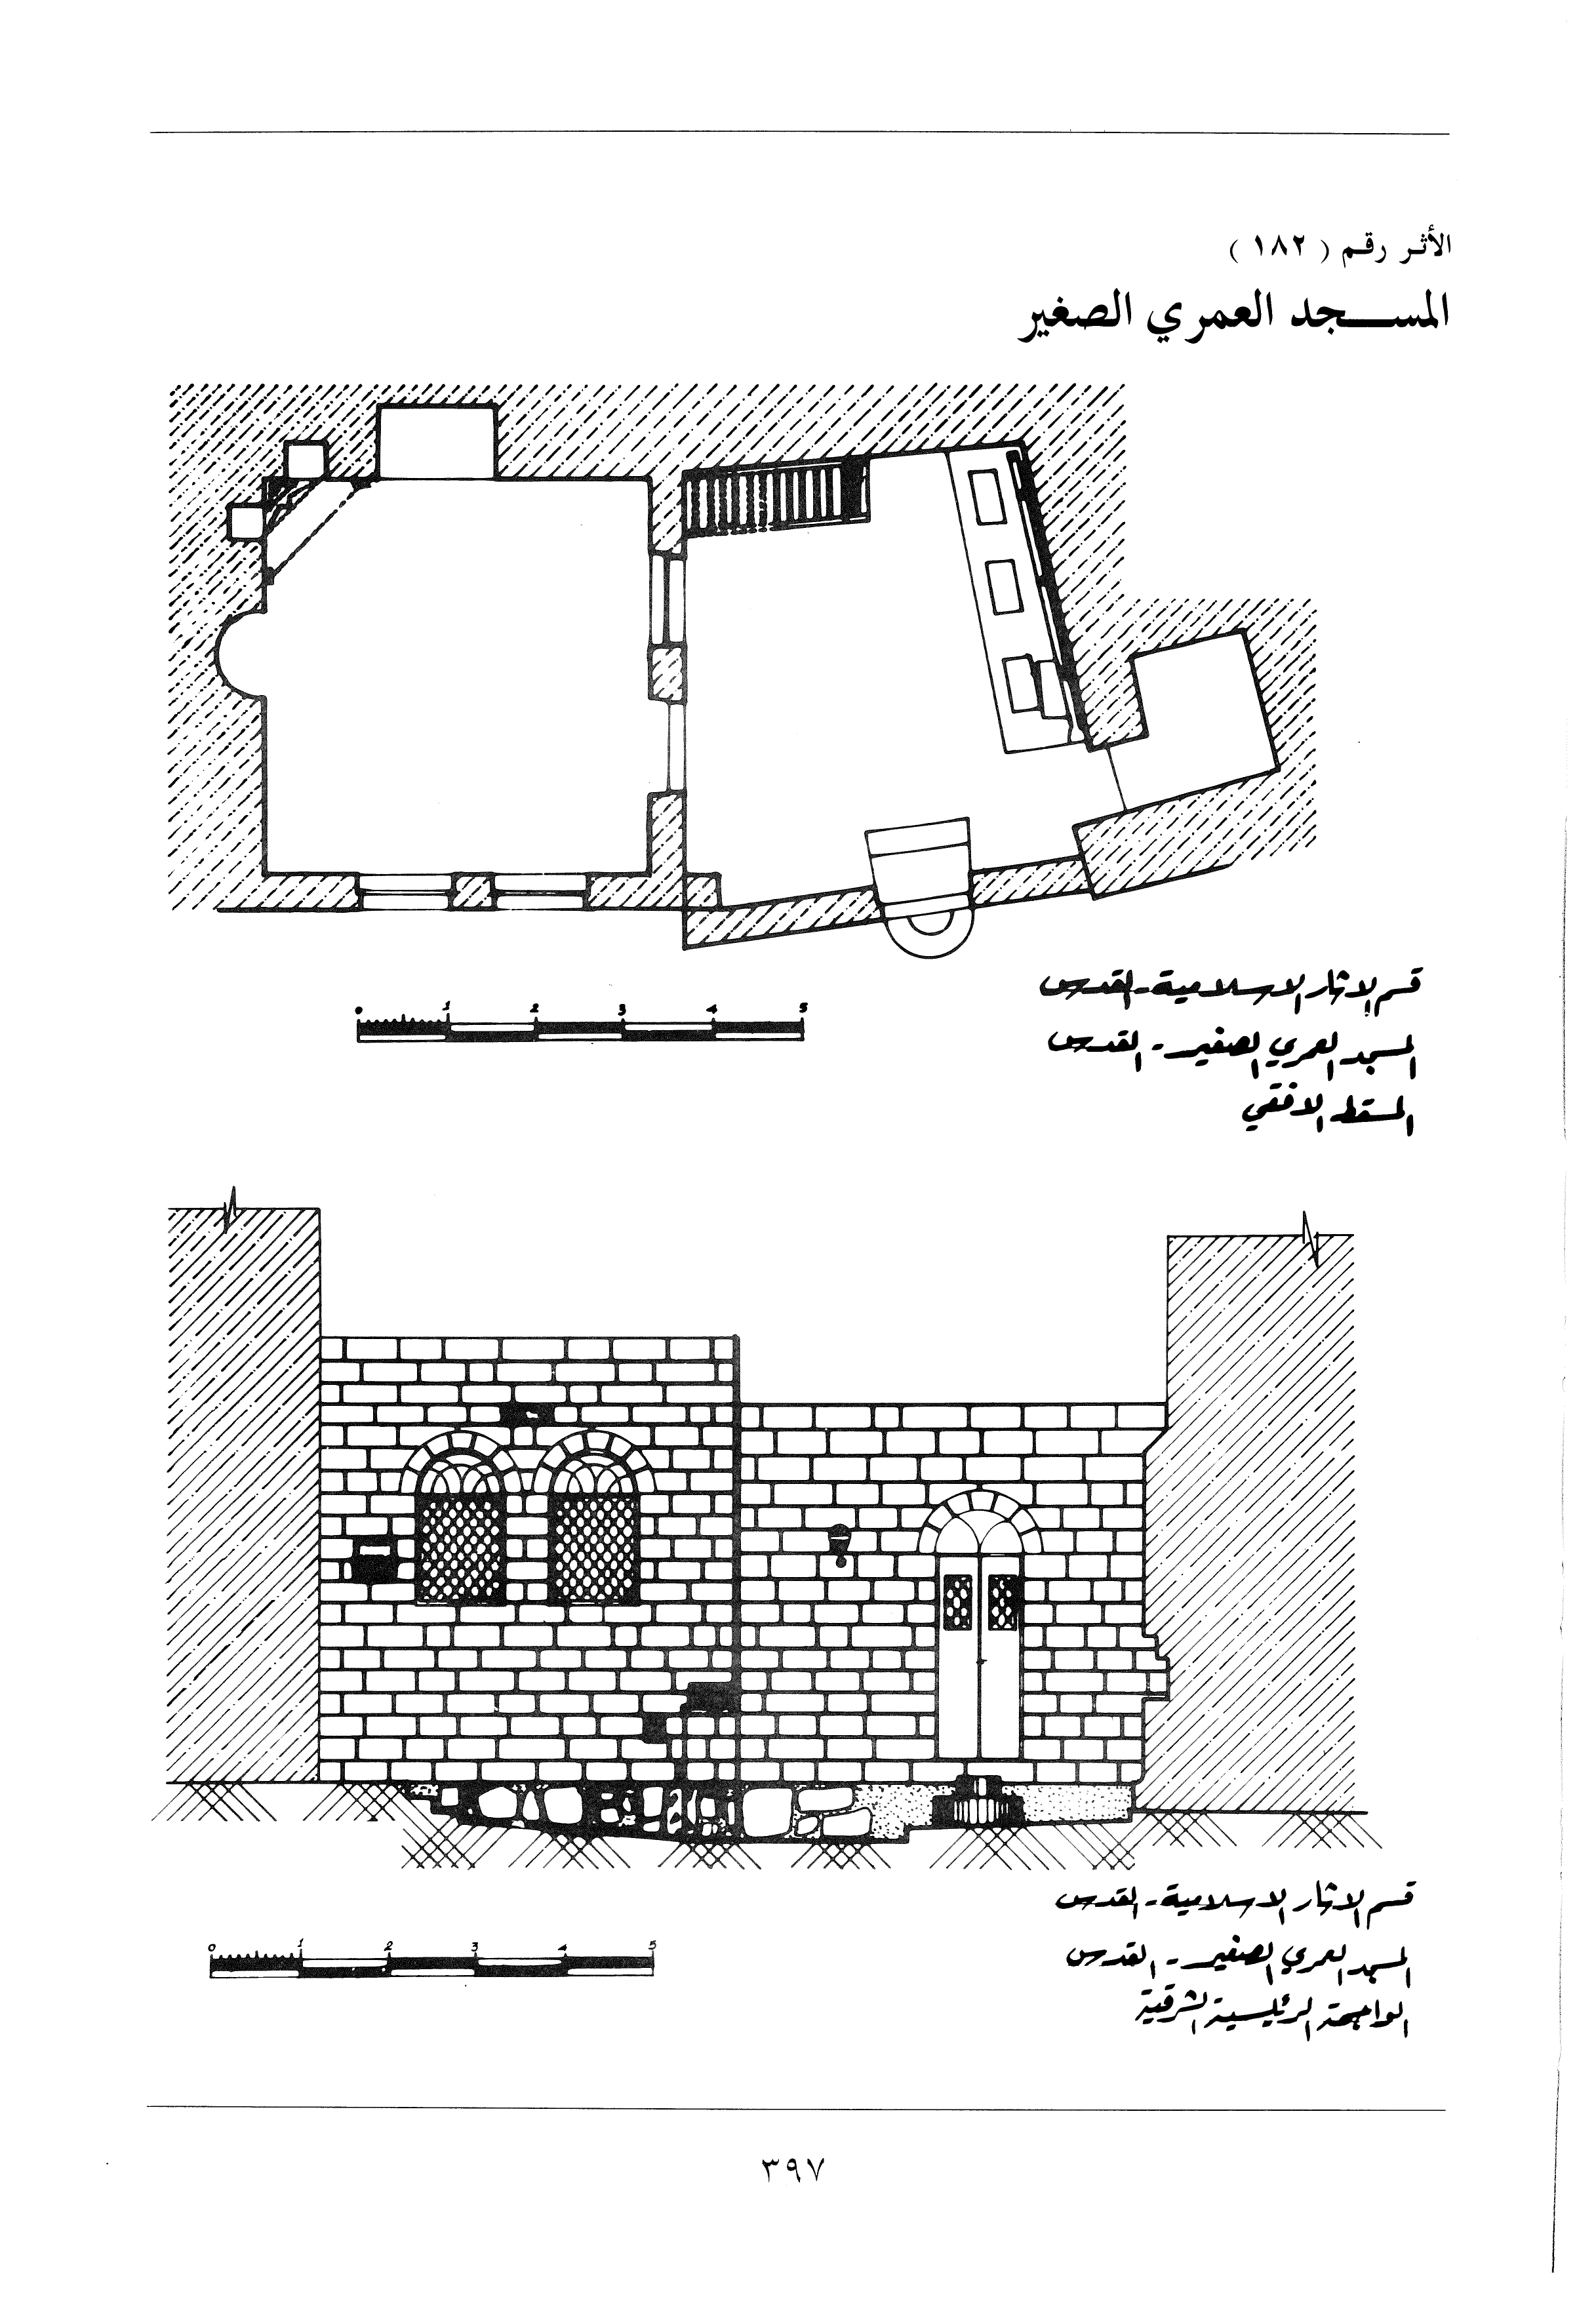 الأثر رقم ( ١٨٢ )
المســجد العمري الصغير
قسم الاثار الاسلامية - القدس
المسجد العمري الصغير - القدس
المسقط الافقي
0 1 2 3 4 5
قسم الاثار الاسلامية - القدس
المسجد العمري الصغير - القدس
الواجهة الرئيسية الشرقية
0 1 2 3 4 5
٣٩٧